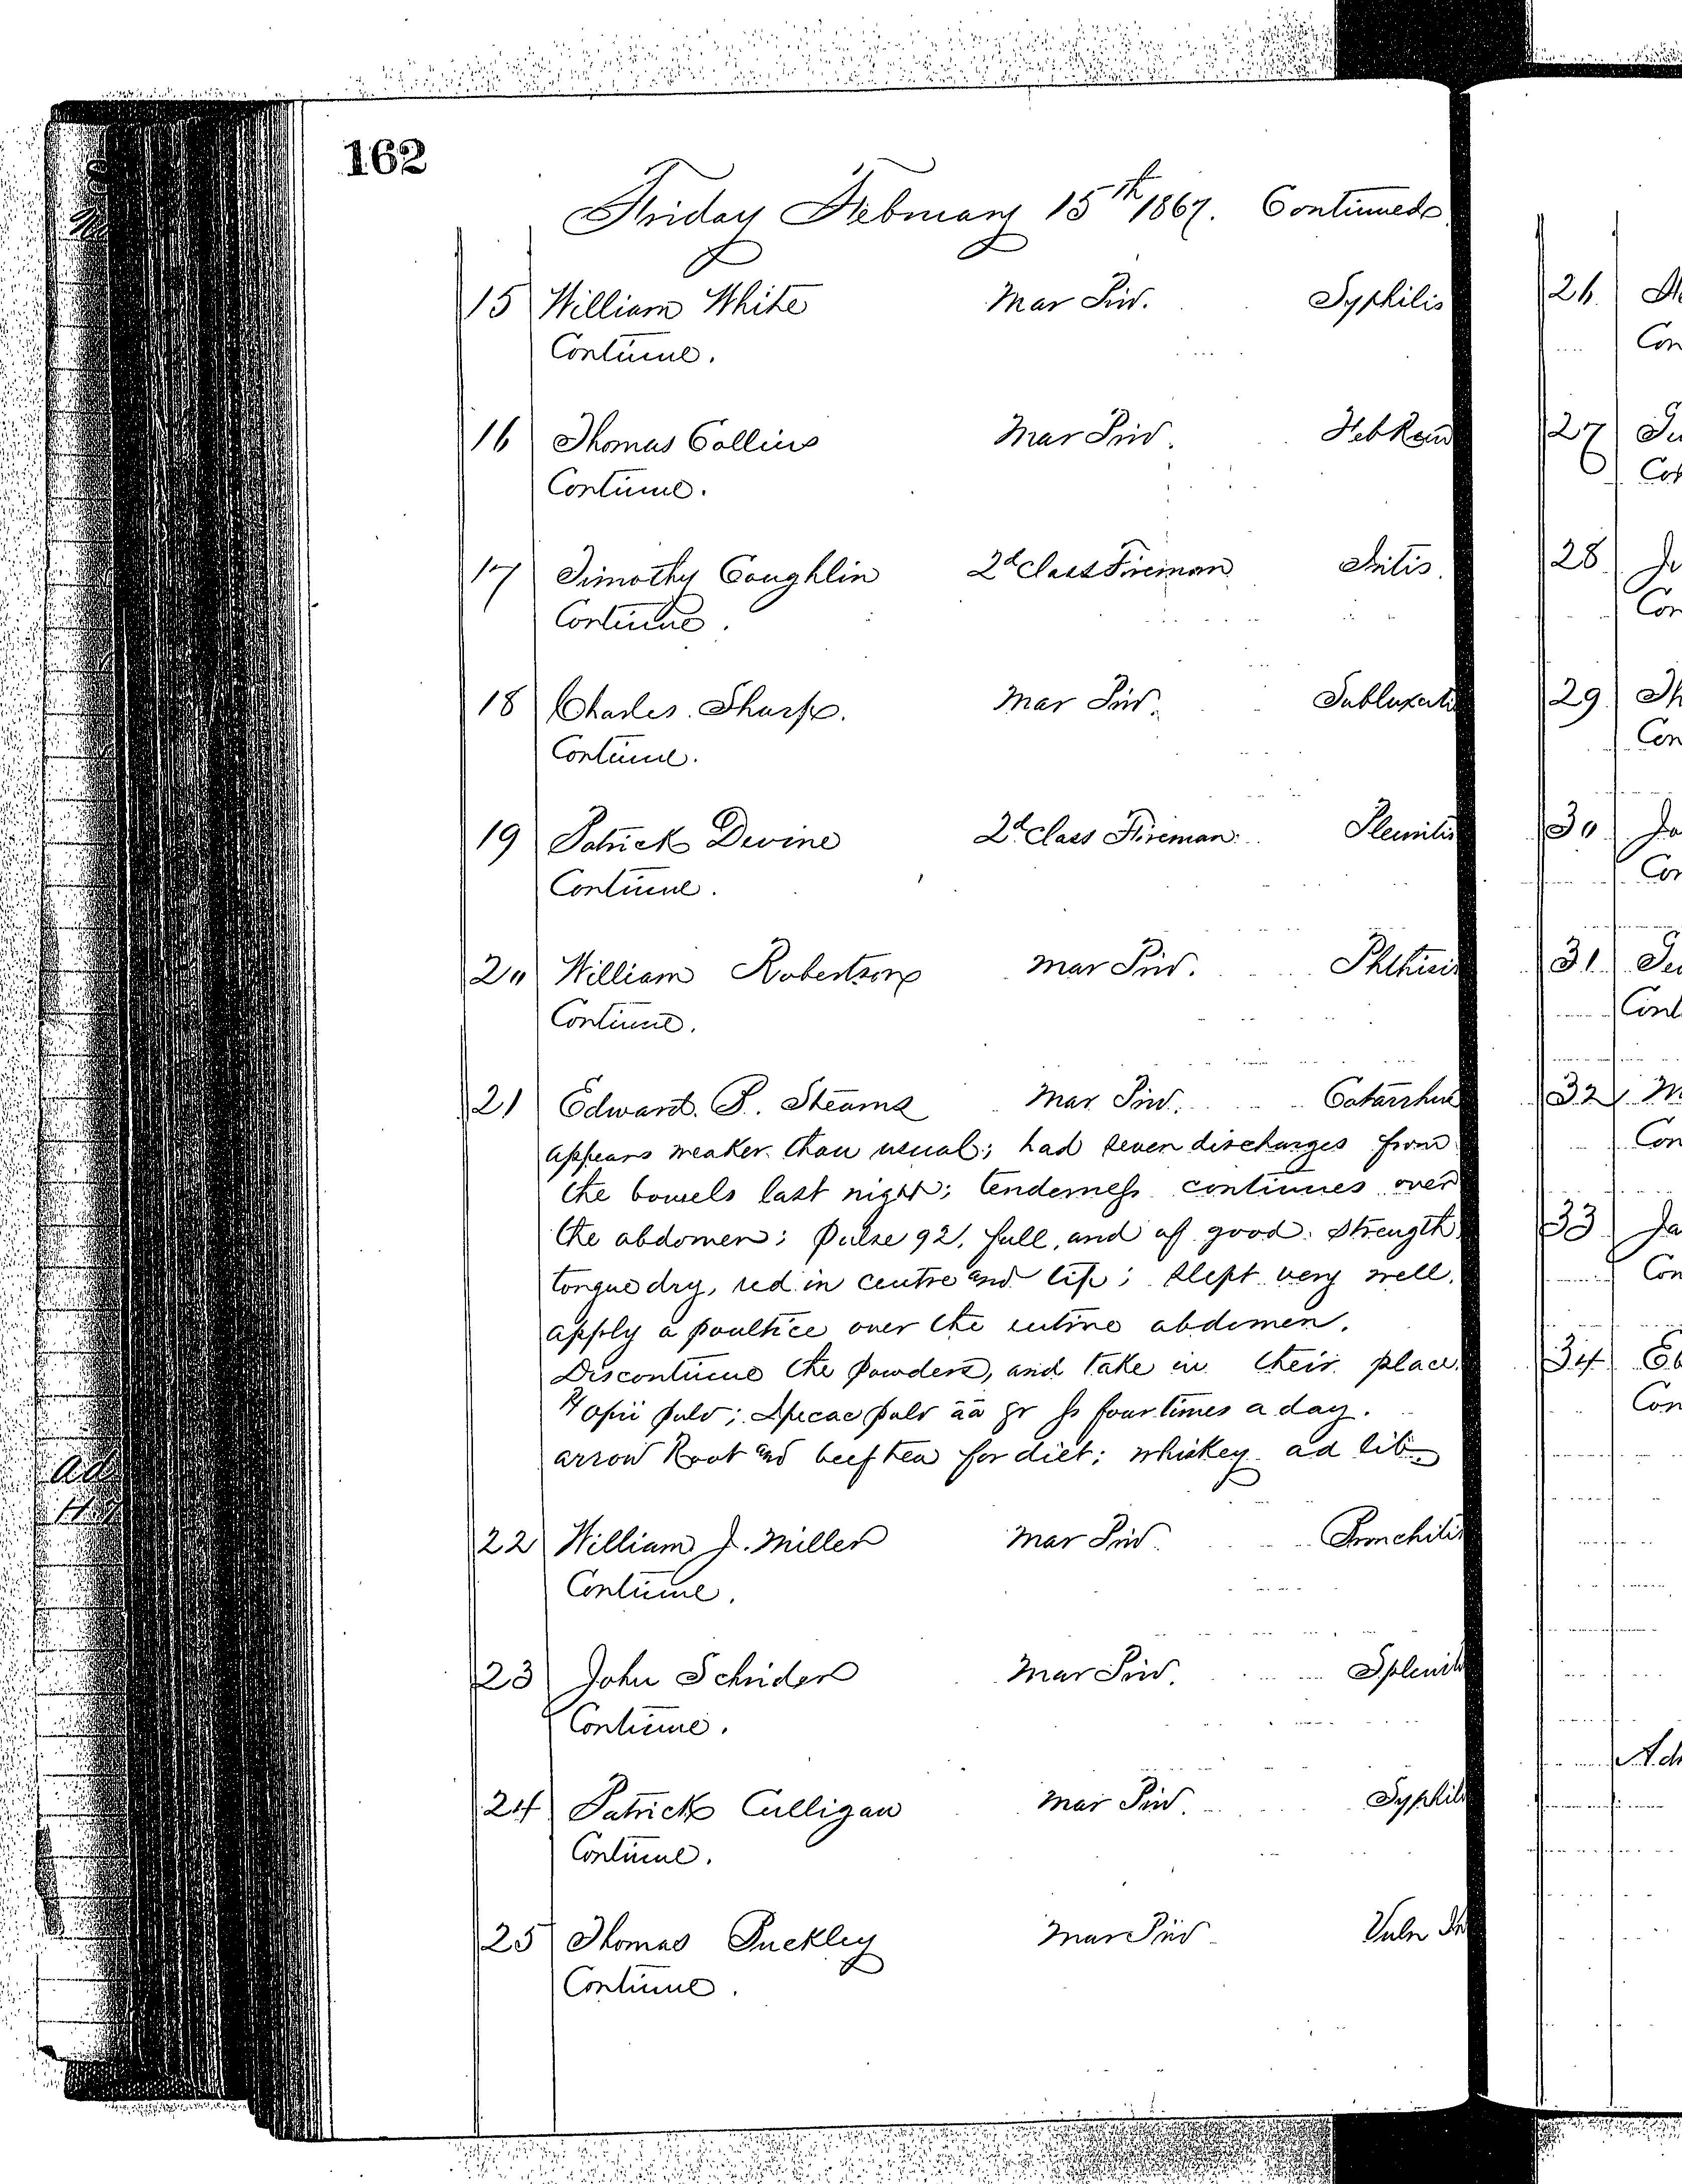 162
Friday February 15th 1867. Continued
15 William White Mar Priv. Syphilis
Continue.
16 Thomas Collins Mar Priv. Feb Rem
Continue.
17 Timothy Coughlin 2d Class Fireman Iritis.
Continue.
18 Charles Sharp. Mar Priv. Subluxati
Continue.
19 Patrick Devine 2d Class Fireman. Pleuritis
Continue.
20 William Robertson Mar Priv. Phthisis
Continue.
21 Edward P. Stearns Mar Priv. Catarrhus
appears weaker than usual; had seven discharges from
the bowels last night; tenderness continues over
the abdomen; pulse 92, full, and of good strength
tongue dry, red in centre and tip; slept very well.
apply a poultice over the entire abdomen.
Discontinue the powders, and take in their place.
℞ Opii pulv; Ipecac pulv āā gr ss four times a day.
arrow Root and beef tea for diet; whiskey ad lib
22 William J. Miller Mar Priv. Bronchitis
Continue.
23 John Schrider Mar Priv. Splenit
Continue.
24 Patrick Culligan Mar Priv. Syphili
Continue.
25 Thomas Buckley Mar Priv Vuln In
Continue.
26.
Con
27
Co
28
Con
29 Th
Con
30 Ja
Con
31
Cont
32 M
Con
33 Ja
Con
34 Ed
Con
Ad